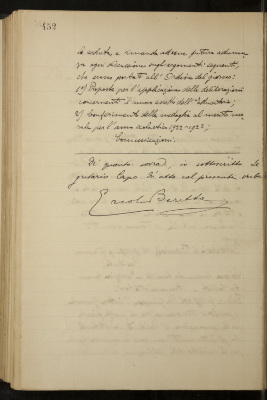 152
la seduta, e rimanda ad una futura adunanza
ogni discussione sugli argomenti seguenti,
che erano portati all'Ordine del giorno:
1°) Proposta per l'applicazione delle deliberazioni
concernenti il nuovo assetto dell'Educatorio;
2°) Conferimento della medaglia al merito mo-
rale per l'anno scolastico 1922-1923;
Comunicazioni.
Di quanto sovra, io sottoscritto Se
gretario Capo dò atto col presente verba
Ercole Beretta